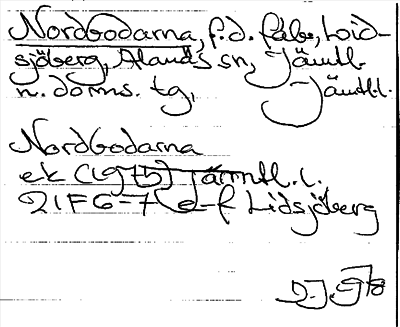 Nordbodarna, f.d. fäb., Loid-
sjöberg, Alanäs sn, Jämtl.
n. doms. tg, Jämtl.l.
Nordbodarna
ek (1915) Jämtl. l.
21F6-7 e-f Lidsjöberg